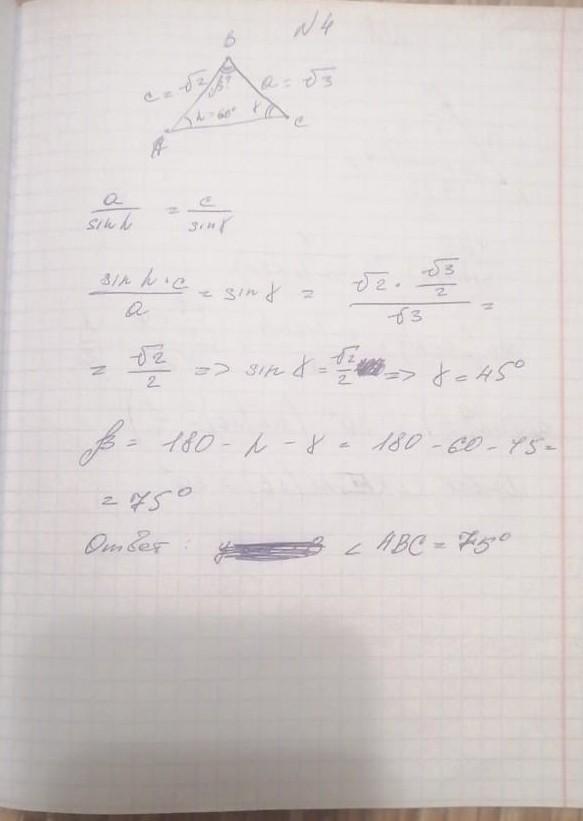 N4
B
c = √2 β? a = √3
α = 60° γ
A C
a/sin α = c/sin γ
(sin α · c)/a = sin γ = (√2 · √3/2)/√3 =
= √2/2 => sin γ = √2/2 => γ = 45°
β = 180 - α - γ = 180 - 60 - 45 =
= 75°
Ответ: ∠ ABC = 75°